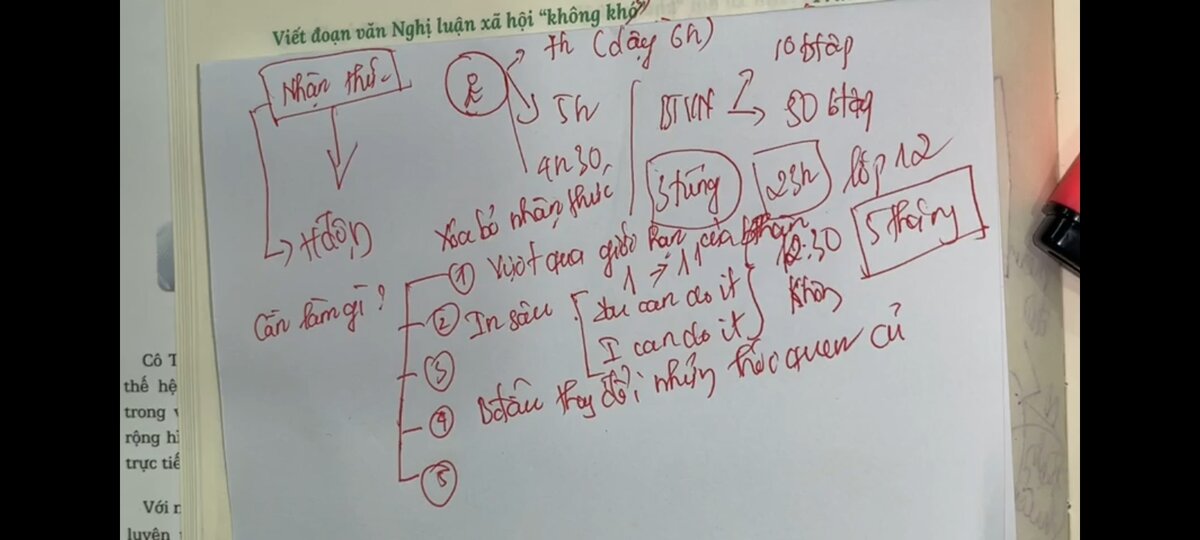 Viết đoạn văn Nghị luận xã hội “không khó
Nhận thức
→ Hđộng
7h (dậy 6h)
5h
4h30
Xóa bỏ nhận thức
BTVN
10 btập
50 btập
3 tiếng
23h
lớp 12
12:30
5 tháng
Cần làm gì?
① Vượt qua giới hạn của bthân
1 → 11
② In sâu
You can do it
I can do it
không
③
④ Bđầu thay đổi những thói quen cũ
⑤
Cô T
thế hệ
trong v
rộng hì
trực tiế
Với n
luyện